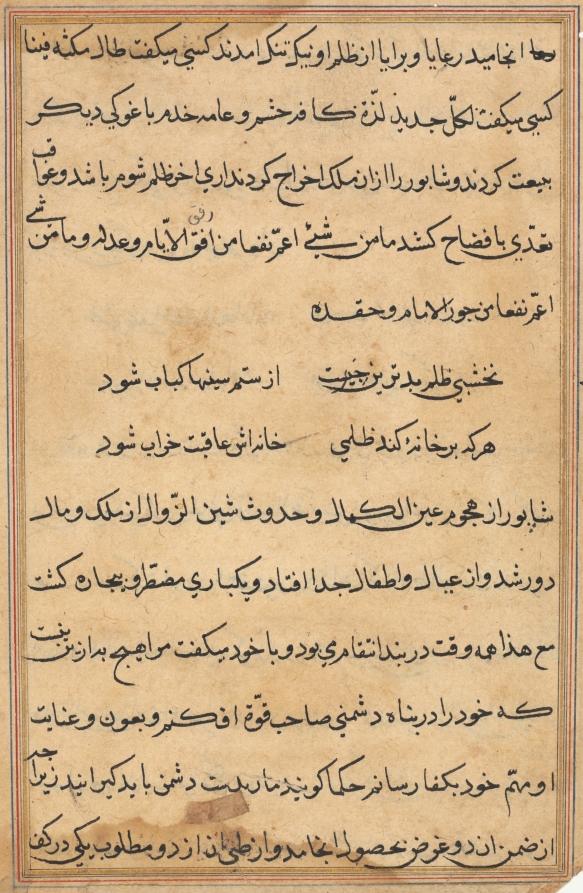 انجامید رعایا و برایا از ظلم او نیک تنک امدند کسی میکفت طال مکثه فینا
کسی میکفت لکلّ جدیذ لذّة کافر حشم و عامه خدم با غوکی دیکر
بیعت کردند و شاپور را ازان ملک اخراج کردند اری اخر ظلم شوم باشد و عواقب
تعدّی بافضاح کشد ما من شیئ اعمّ نفعا من رفق الامام و عدله و ما من شیء
اعمّ نفعا من جور الامام و حقده
نخشبی ظلم بد ترین چیزست از ستم سینها کباب شود
هرکه بر خانهٔ کند ظلمی خانه اش عاقبت خراب شود
شاپور از هجوم عین الکمال و حدوث شین الزّوال از ملک و مال
دور شد و از عیال و اطفال جدا افتاد و یکباری مضطر و بیچاره کشت
مع هذا همه وقت در بند انتقام می بود و با خود میکفت مرا هیچ به ازین نیست
که خود را در پناه دشمنی صاحب قوّة افکنم و بعون و عنایت
او مهمّ خود بکفا رسانم حکما کویند مار بدست دشمن باید کیرانید زیرا چه
از ضمن ان دو غرض بحصول انجامد و از طی ان از دو مطلوب یکی در کف